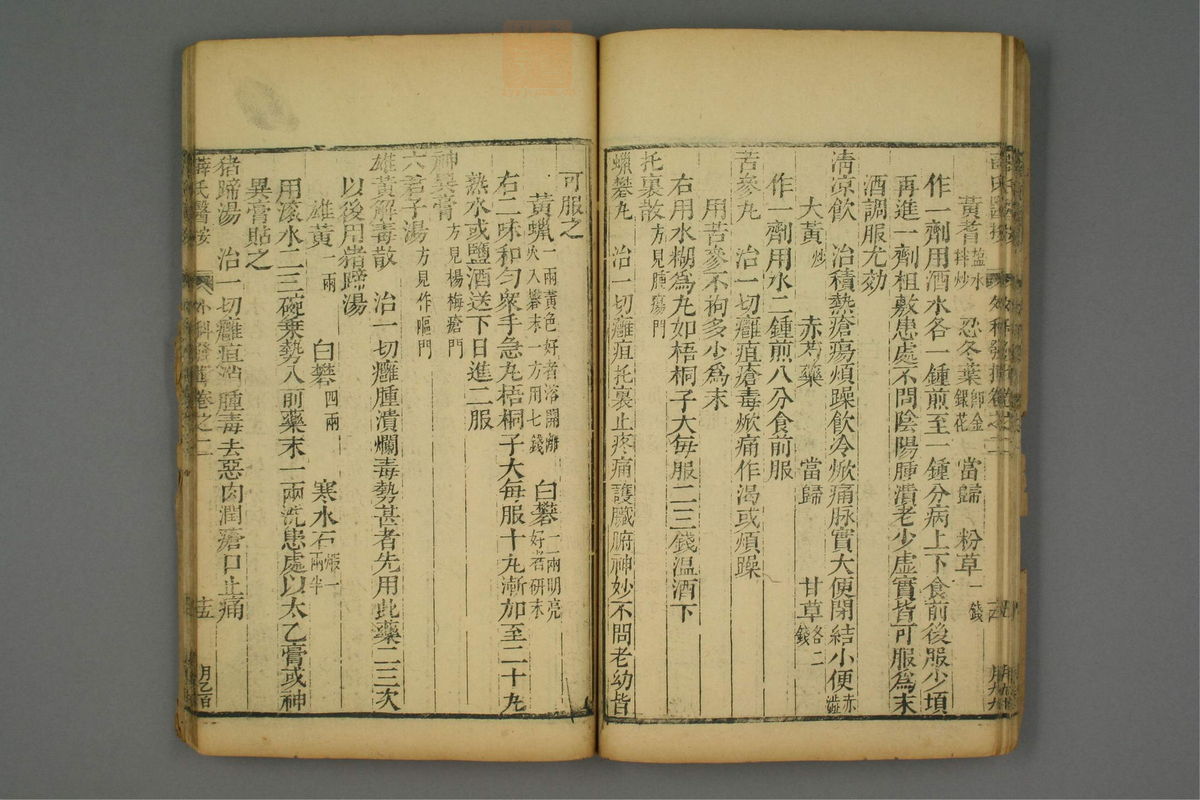 黃耆鹽水拌炒　忍冬葉卽金銀花　當歸　粉草一錢
作一劑用酒水各一鍾煎至一鍾分病上下食前後服少頃
再進一劑粗敷患處不問陰陽腫潰老少虛實皆可服為末
酒調服尤効
清凉飲　治積熱瘡瘍煩躁飲冷焮痛脉實大便閉結小便赤澁
大黃炒　赤芍藥　當歸　甘草各二錢
作一劑用水二鍾煎八分食前服
苦參丸　治一切癰疽瘡毒焮痛作渴或煩躁
用苦參不拘多少為末
右用水糊為丸如梧桐子大每服二三錢温酒下
托裏散方見腫瘍門
蠟礬丸　治一切癰疽托裏止疼痛護臟腑神妙不問老幼皆
可服之
黃蠟一兩黃色好者溶開離火入礬末一方用七錢　白礬一二兩明亮好者研末
右二味和勻衆手急丸梧桐子大每服十丸漸加至二十丸
熟水或鹽酒送下日進二服
神異膏方見楊梅瘡門
六君子湯方見作嘔門
雄黃解毒散　治一切癰腫潰爛毒勢甚者先用此藥二三次
以後用猪蹄湯
雄黃一兩　白礬四兩　寒水石煅一兩半
用滚水二三碗乗勢入前藥末一兩洗患處以太乙膏或神
異膏貼之
猪蹄湯　治一切癰疽消腫毒去惡肉潤瘡口止痛
薛氏醫按　外科發揮卷之二　十五　月乙百